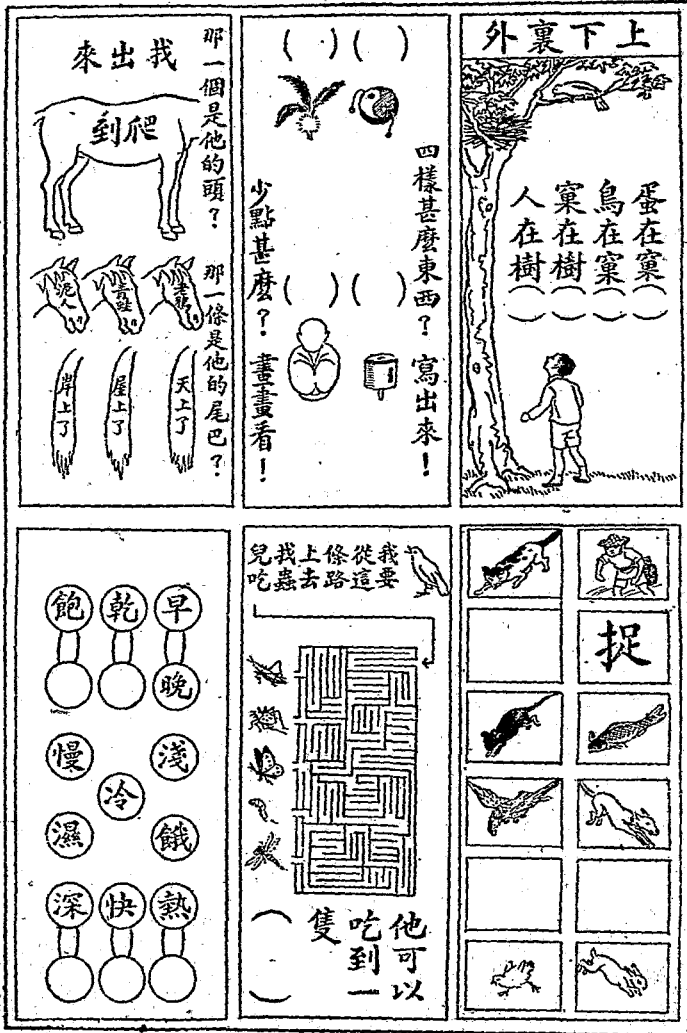 上下裏外
蛋在窠（ ）
鳥在窠（ ）
窠在樹（ ）
人在樹（ ）
四樣甚麼東西？寫出來！
（ ）（ ）
（ ）（ ）
少點甚麼？畫畫看！
那一個是他的頭？那一條是他的尾巴？
我出來
爬到
青蛙
泥人
天上了
屋上了
岸上了
捉
我要
從這
條路
上去
找蟲
兒吃
他可以
吃到一
隻
（ ）
早 乾 飽
晚
淺 慢
冷
餓 濕
熱 快 深